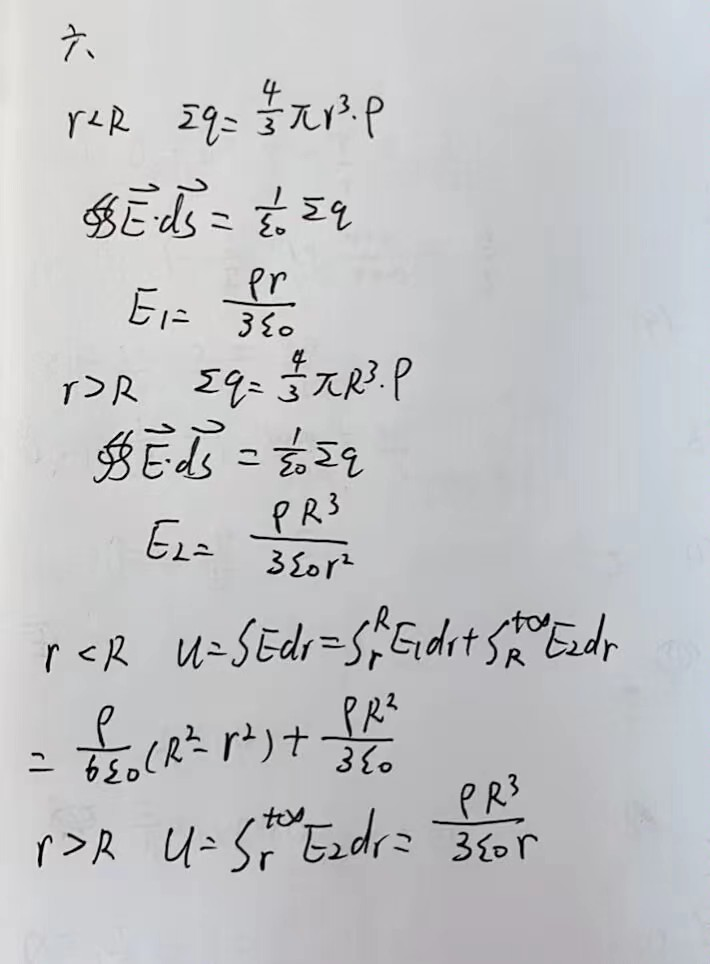 六、
r<R Σq=4/3 πr³·ρ
∯E⃗·ds⃗ = 1/ε₀ Σq
E₁= ρr/3ε₀
r>R Σq=4/3 πR³·ρ
∯E⃗·ds⃗ = 1/ε₀ Σq
E₂= ρR³/3ε₀r²
r<R U=∫Edr=∫ᵣᴿE₁dr+∫_R^{+∞}E₂dr
= ρ/6ε₀ (R²-r²)+ ρR²/3ε₀
r>R U=∫_r^{+∞}E₂dr= ρR³/3ε₀r